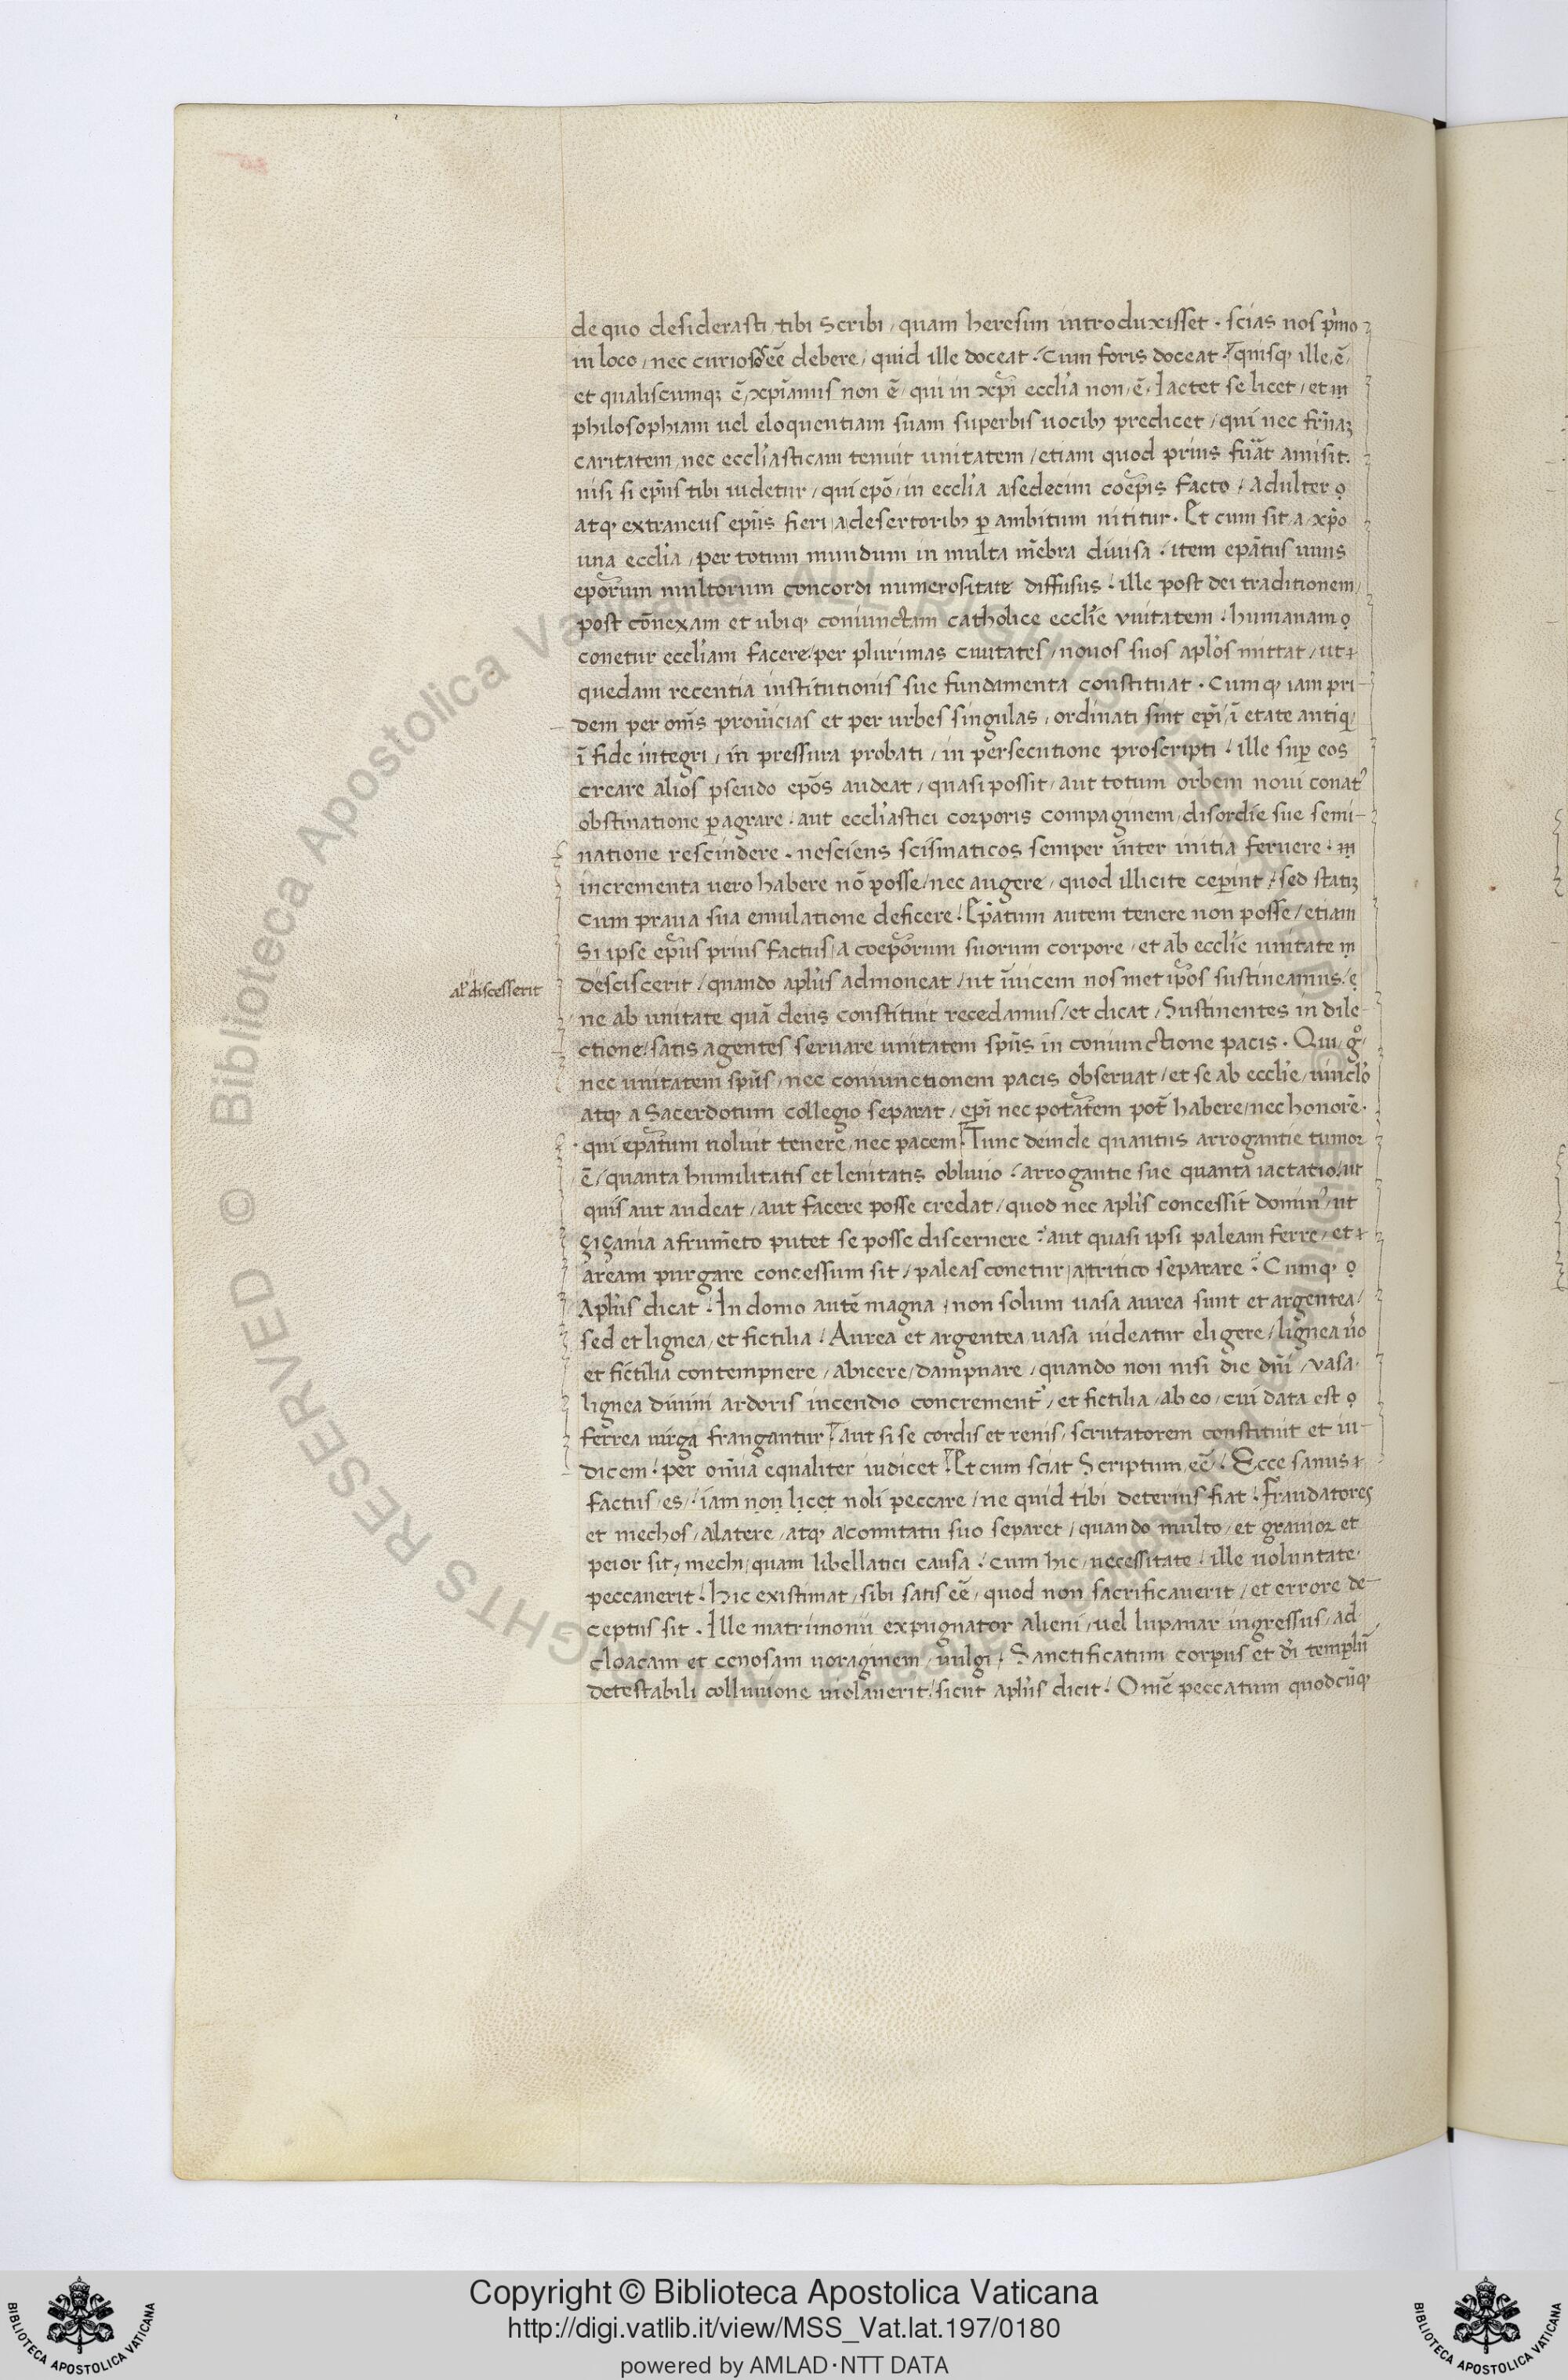 de quo desiderasti tibi scribi, quam heresim introduxisset. scias nos p̃mo
in loco, nec curiosos eẽ debere, quid ille doceat. Cum foris doceat. quisq̨ ille ẽ,
et qualiscumqꝫ ẽ, xp̃ianus non ẽ, qui in xp̃i eccl̃ia non ẽ. Iactet se licet, et
philosophiam uel eloquentiam suam superbis uocibꝫ predicet, qui nec fr̃naꝫ
caritatem, nec eccl̃iasticam tenuit unitatem, etiam quod prius fũat amisit.
nisi si ep̃us tibi uidetur, qui ep̃o in eccl̃ia a sedecim coep̃is facto, adulter
atq̨ extraneus ep̃us fieri a desertoribꝫ ꝑ ambitum nititur. Et cum sit a xp̃o
una eccl̃ia, per totum mundum in multa m̃ebra diuisa. item ep̃atus unus
ep̃orum multorum concordi numerositate diffusus. ille post dei traditionem,
post cõnexam et ubiq̨ coniunctam catholice eccl̃ie unitatem. humanam
conetur eccl̃iam facere. per plurimas ciuitates, nouos suos apl̃os mittat, ut
quedam recentia institutionis sue fundamenta constituat. Cumq̨ iam pri-
dem per om̃s prouĩcias et per urbes singulas, ordinati sint ep̃i, ĩ etate antiq̨,
ĩ fide integri, in pressura probati, in persecutione proscripti. ille suꝑ eos
creare alios pseudo ep̃os audeat, quasi possit, aut totum orbem noui conat᷒
obstinatione ꝑagrare. aut eccl̃iastici corporis compaginem, disordie sue semi-
natione rescindere. nesciens scismaticos semper inter initia feruere.
incrementa uero habere nõ posse, nec augere, quod illicite ceperint, sed statiꝫ
cum praua sua emulatione deficere. Ep̃atum autem tenere non posse, etiam
si ipse ep̃us prius factus, a coep̃orum suorum corpore, et ab eccl̃ie unitate
al᷒ discesserit
desciscerit, quando apl̃us admoneat, ut ĩuicem nosmet ip̃os sustineamus.
ne ab unitate quã deus constituit recedamus, et dicat, Sustinentes in dile-
ctione, satis agentes seruare unitatem sp̃us in coniunctione pacis. Qui g̊
nec unitatem sp̃us, nec coniunctionem pacis obseruat, et se ab eccl̃ie, uinclõ
atq̨ a Sacerdotum collegio separat, ep̃i nec potãtem pot̃ habere, nec honorẽ.
qui ep̃atum noluit tenere, nec pacem. Tunc deinde quantus arrogantie tumor
ẽ, quanta humilitatis et lenitatis obliuio. arrogantie sue quanta iactatio, ut
quis aut audeat, aut facere posse credat, quod nec apl̃is concessit domin᷒, ut
çiçania a frum̃eto putet se posse discernere. aut quasi ipsi paleam ferre, et
aream purgare concessum sit, paleas conetur a tritico separare. Cumq̨
Apl̃us dicat. In domo autẽ magna, non solum uasa aurea sunt et argentea,
sed et lignea, et fictilia. Aurea et argentea uasa uideatur eligere, lignea ũo
et fictilia contempnere, abicere, dampnare, quando non nisi die dñi, uasa
lignea diuini ardoris incendio concrement᷒, et fictilia, ab eo, cui data est
ferrea uirga frangantur. aut si se cordis et renis, scrutatorem constituit et iu-
dicem. per om̃ia equaliter iudicet. Et cum sciat Scriptum eẽ. Ecce sanus
factus es, iam non licet noli peccare, ne quid tibi deterius fiat. Fraudatores
et mechos, a latere, atq̨ a comitatu suo separet, quando multo, et grauior et
peior sit, mechi, quam libellatici causa. cum hic, necessitate, ille uoluntate
peccauerit. Hic existimat, sibi satis eẽ, quod non sacrificauerit, et errore de-
ceptus sit. Ille matrimonii expugnator alieni, uel lupanar ingressus, ad
cloacam et cenosam uoraginem, uulgi. Sanctificatum corpus et dĩ templũ
detestabili colluuione uiolauerit. sicut apl̃us dicit. Omẽ peccatum quodcũq̨
Copyright © Biblioteca Apostolica Vaticana
http://digi.vatlib.it/view/MSS_Vat.lat.197/0180
powered by AMLAD·NTT DATA
BIBLIOTECA APOSTOLICA VATICANA
BIBLIOTECA APOSTOLICA VATICANA